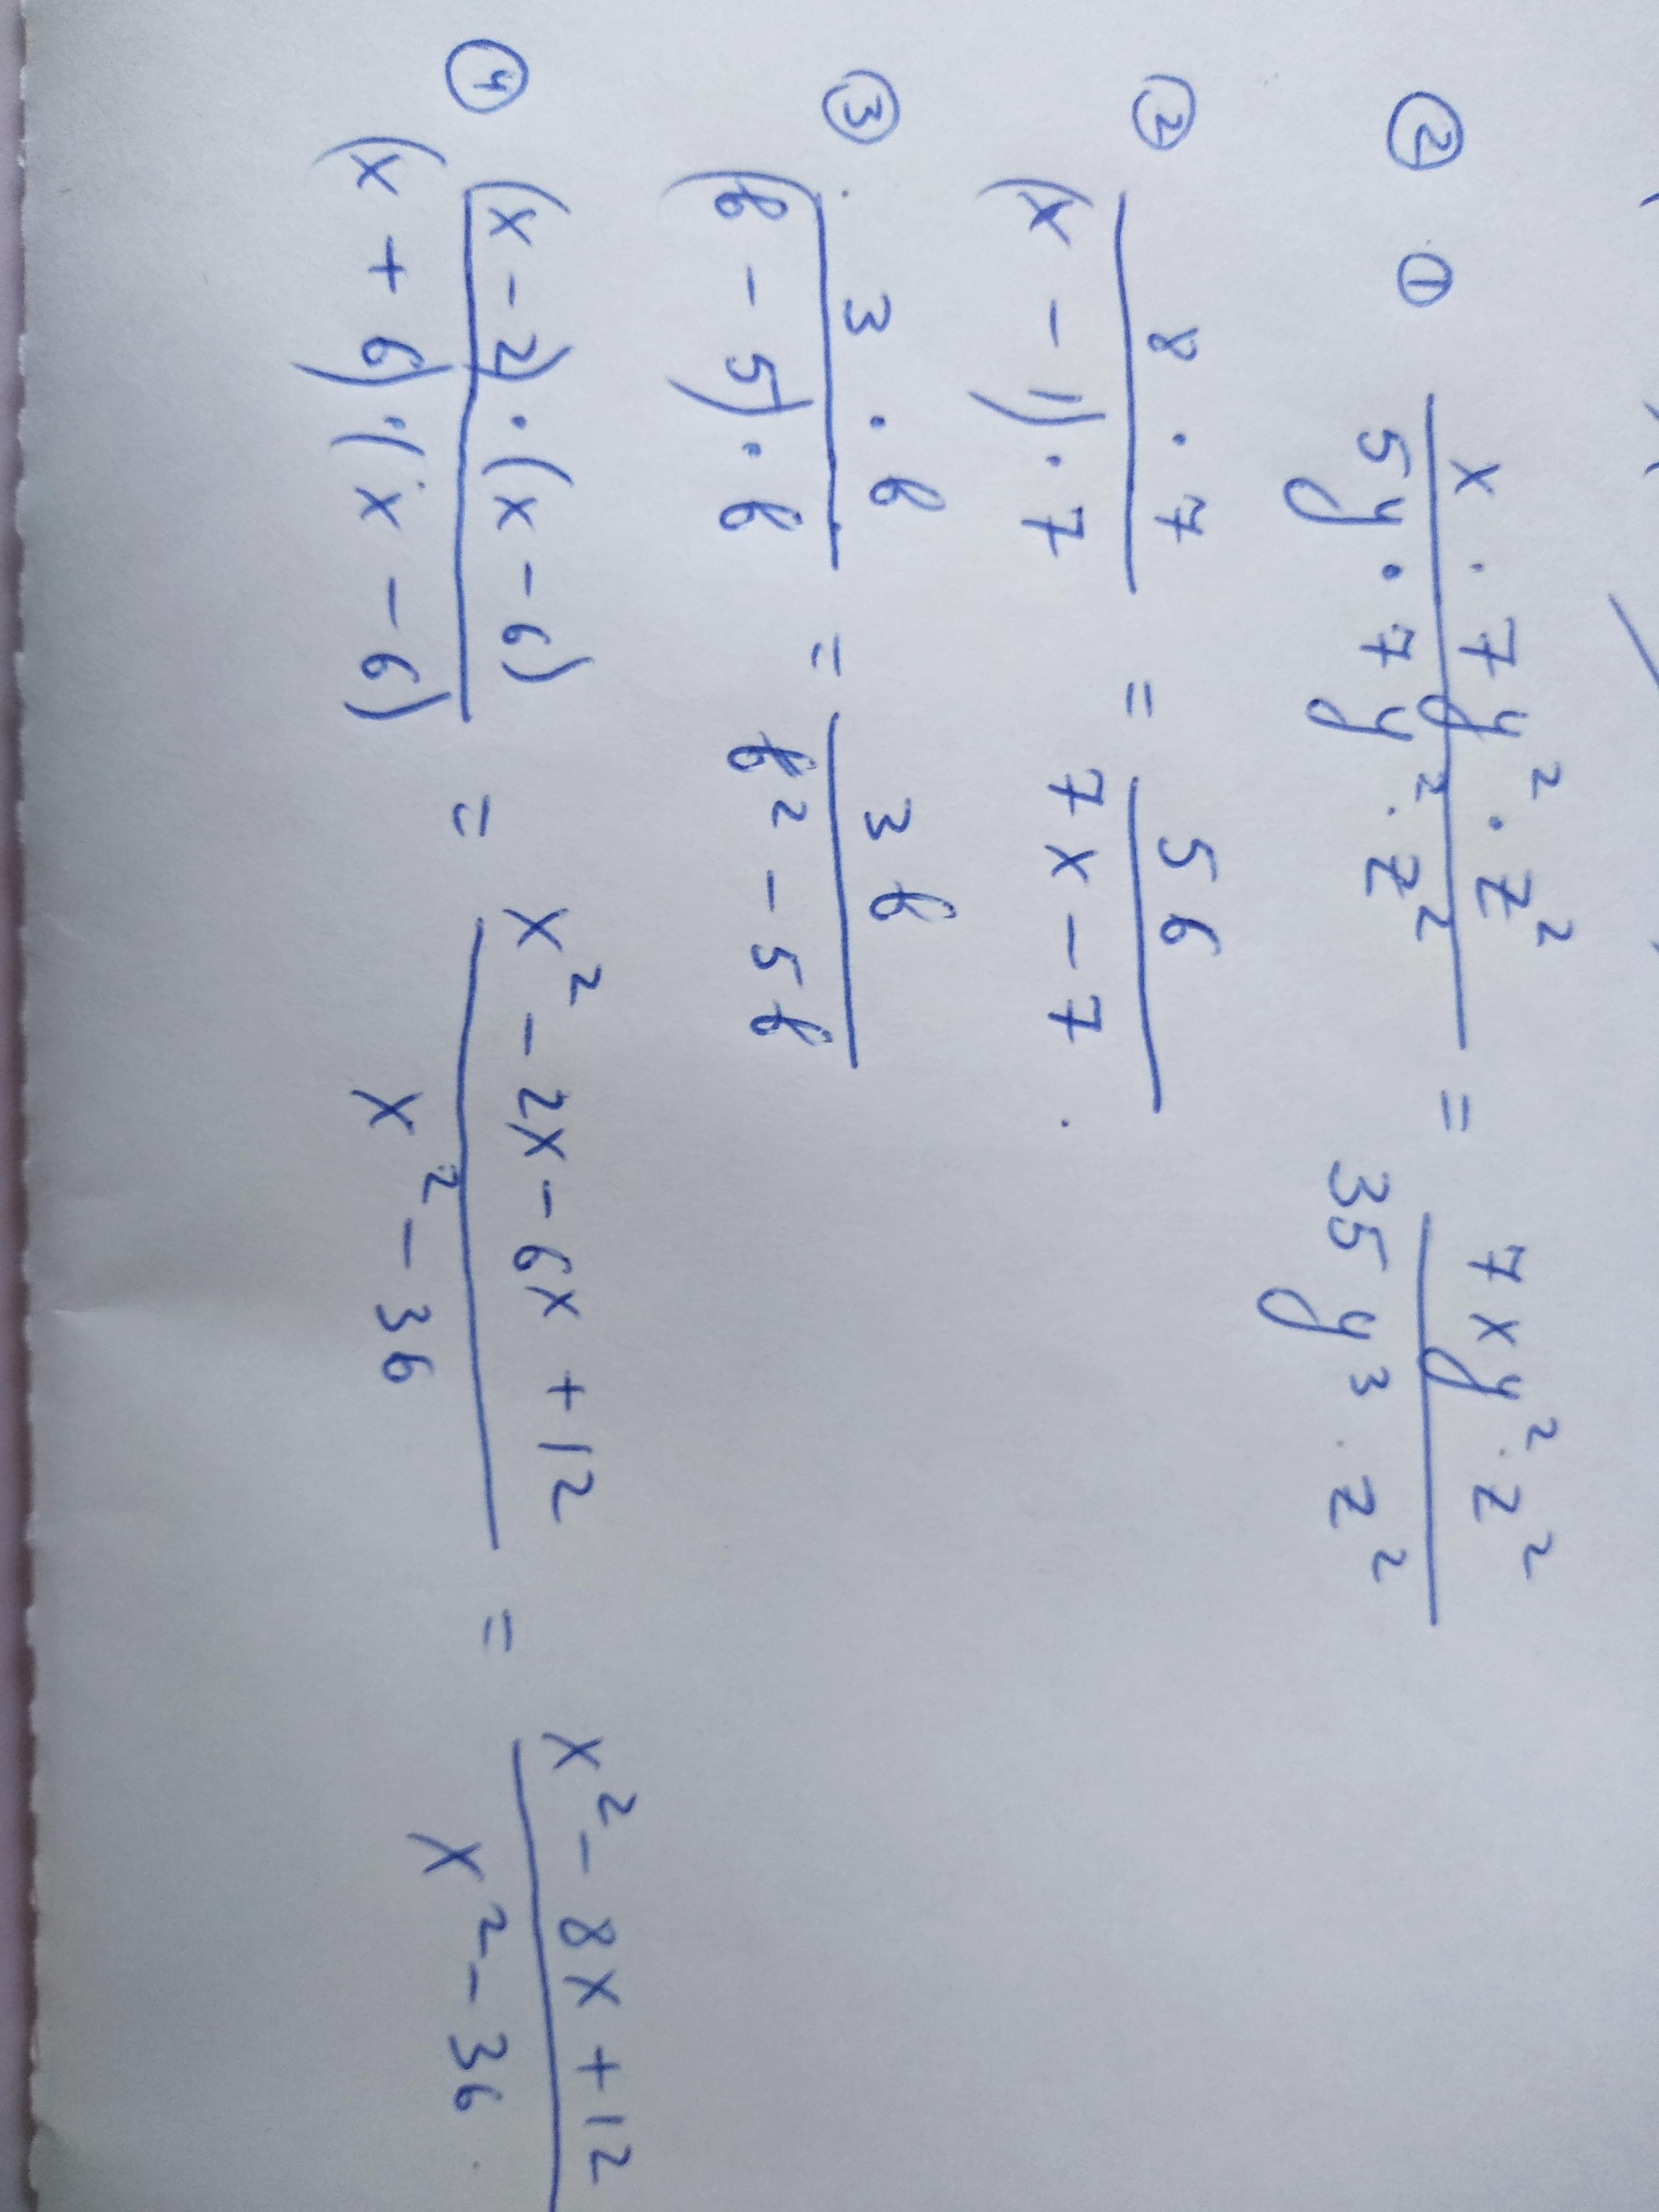 ② ① x · 7y² · z² / 5y · 7y² · z² = 7xy² · z² / 35y³ · z²
② 8 · 7 / (x - 1) · 7 = 56 / 7x - 7
③ 3 · b / (b - 5) · b = 3b / b² - 5b
④ (x - 2) · (x - 6) / (x + 6) · (x - 6) = x² - 2x - 6x + 12 / x² - 36 = x² - 8x + 12 / x² - 36